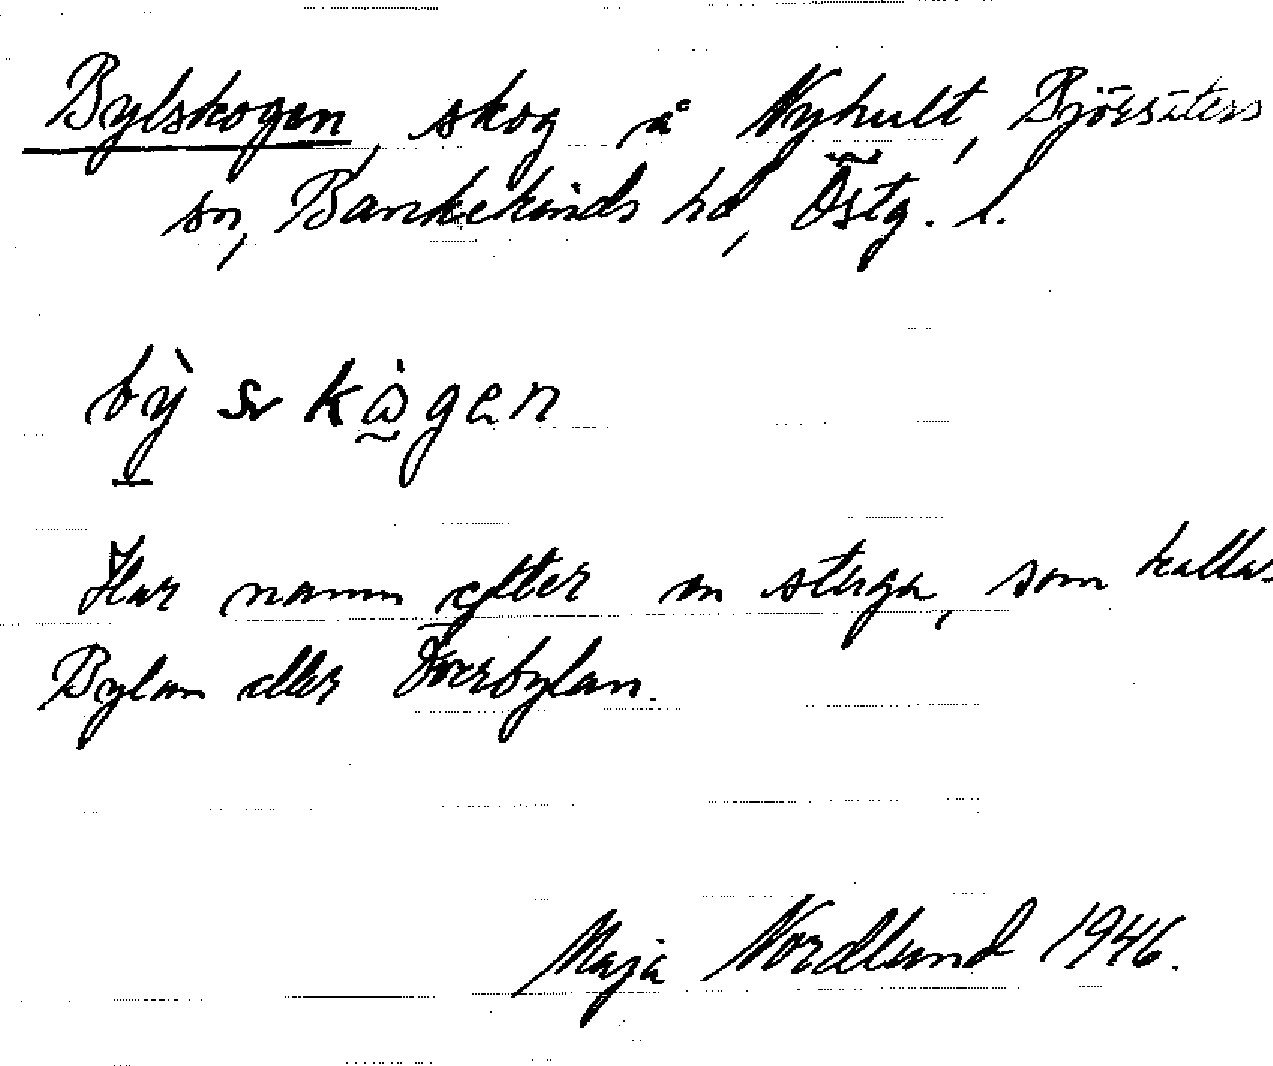 Bylskogen, skog å Nyhult, Björsäters
sn, Bankekinds hd, Östg. l.
bỳ sv kågen
Har namn efter en stuga, som kallas
Bylan eller Överbylan.
Maja Nordlund 1946.